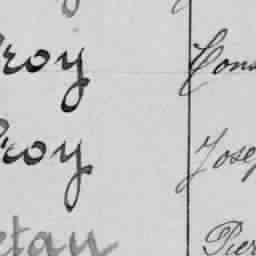 roy Cons
roy Jose
etau Pier